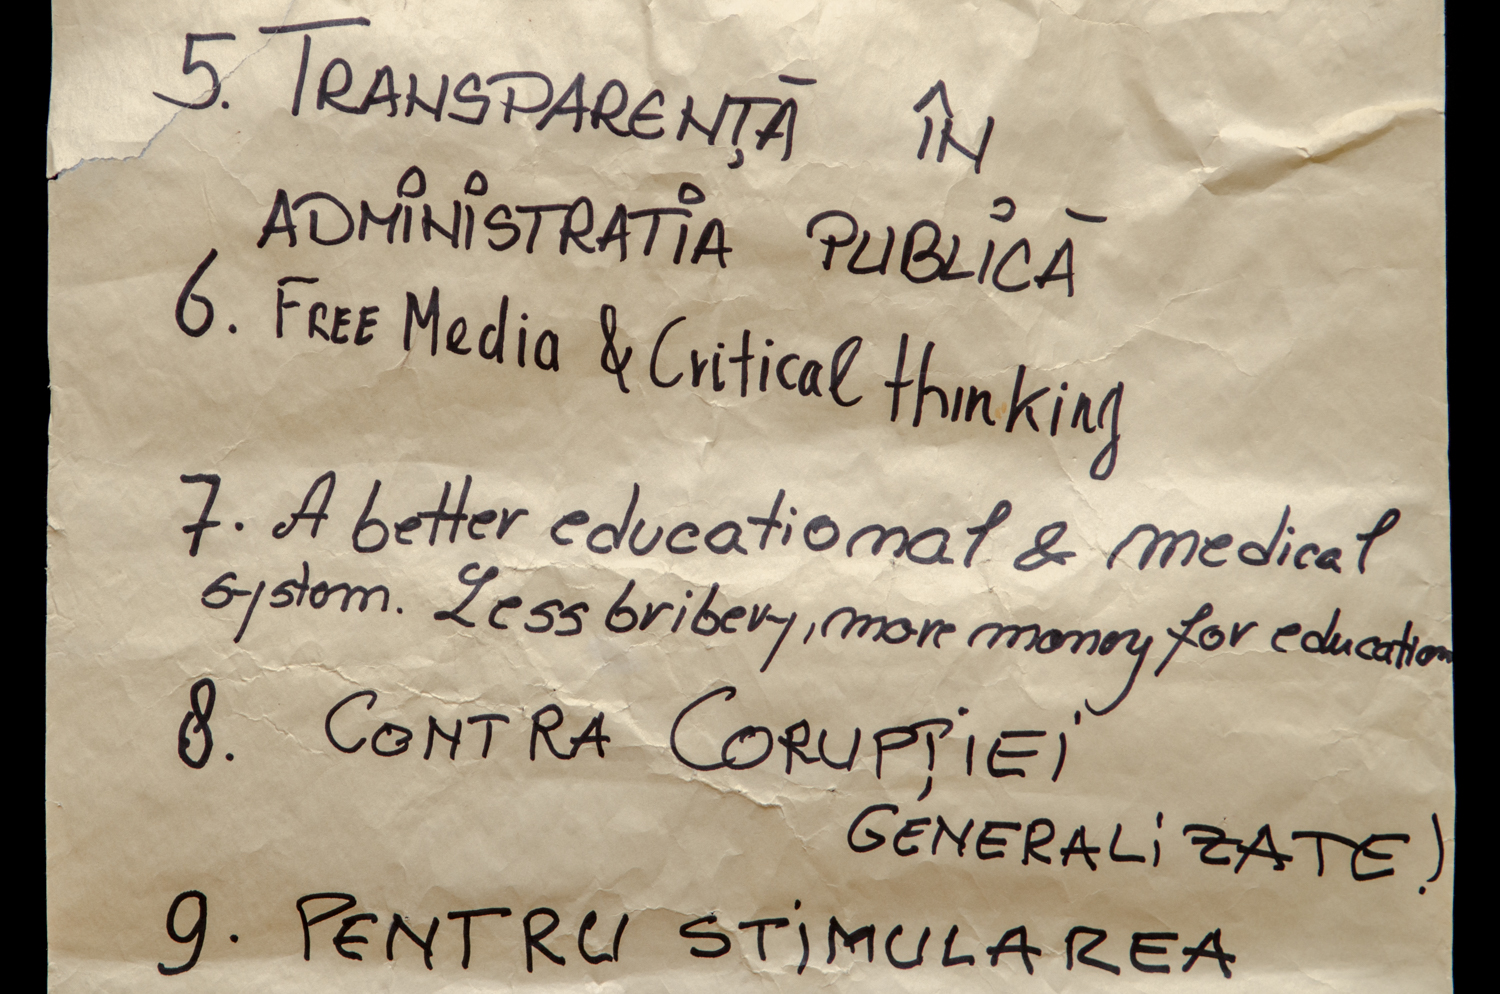 5. TRANSPARENȚĂ ÎN
ADMINISTRATIA PUBLICĂ
6. FREE Media & Critical thinking
7. A better educational & medical
system. Less bribery, more money for education
8. CONTRA CORUPȚIEI
GENERALIZATE!
9. PENTRU STIMULAREA